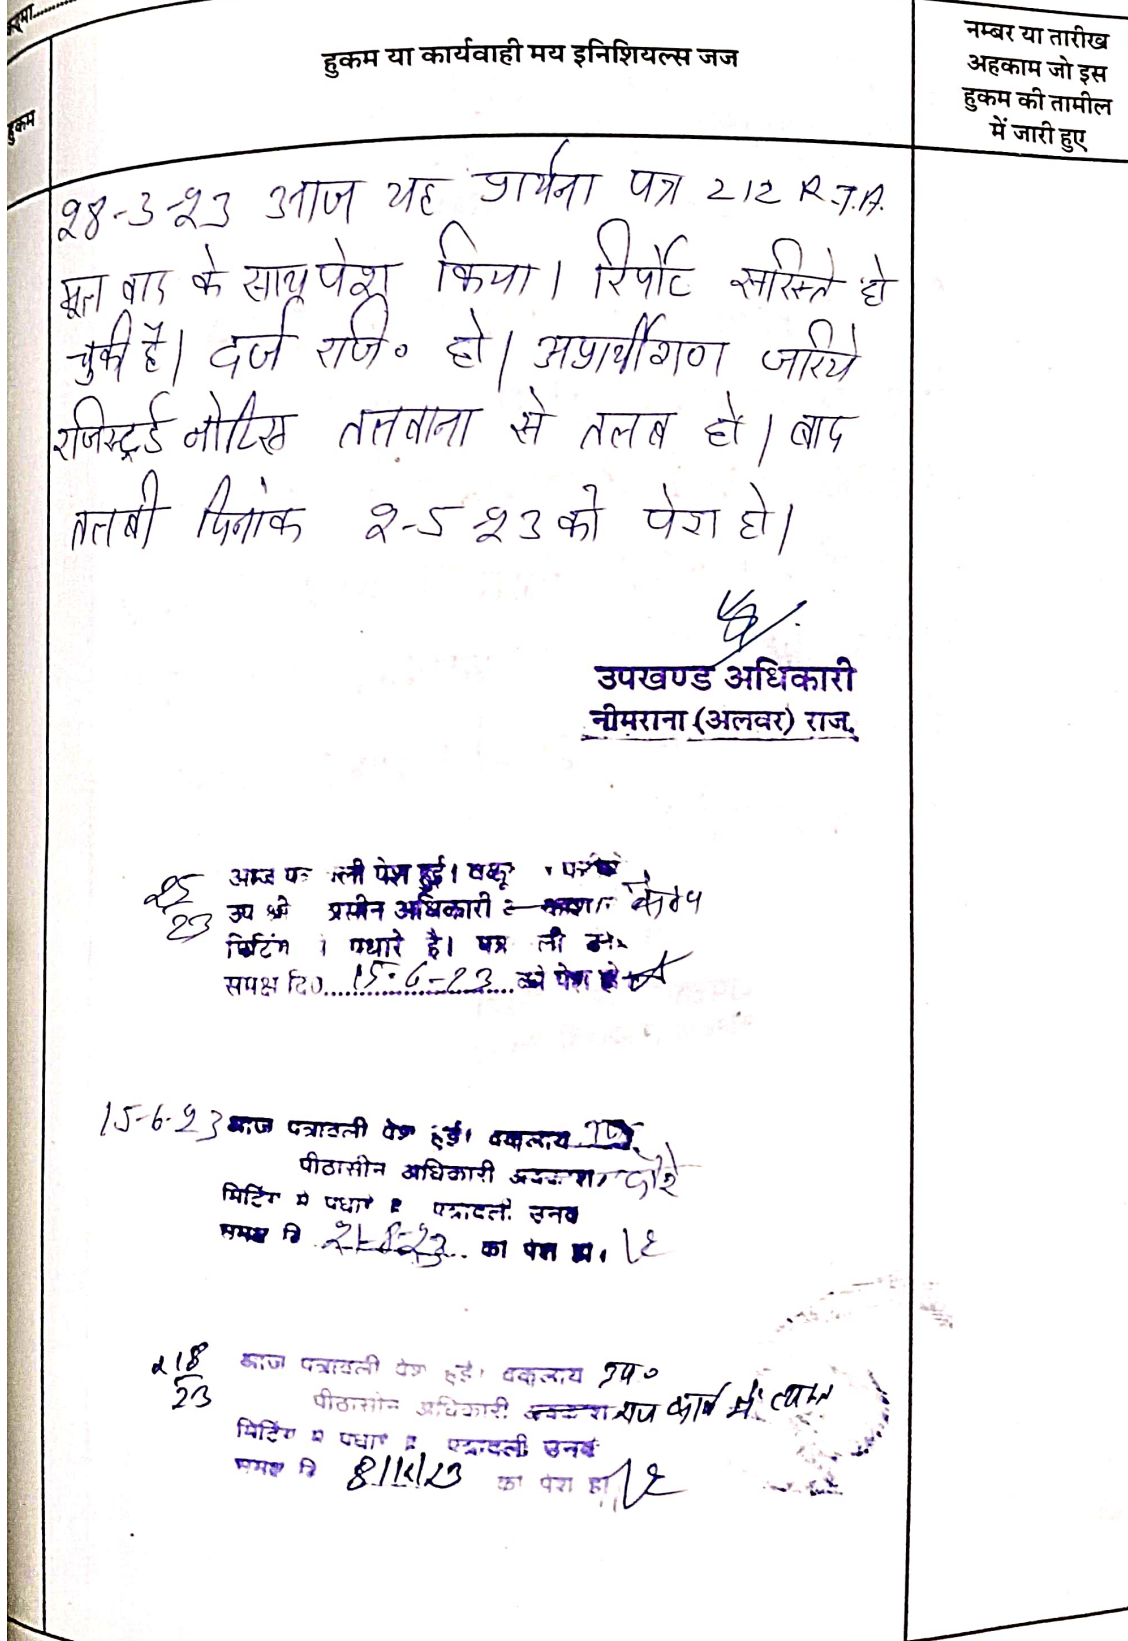 हुकम या कार्यवाही मय इनिशियल्स जज
नम्बर या तारीख
अहकाम जो इस
हुकम की तामील
में जारी हुए
हुकम
28-3-23 आज यह प्रार्थना पत्र 212 R.T.A.
मूल वाद के साथ पेश किया। रिर्पोट सरिस्ते हो
चुकी है। दर्ज रजि० हो। अप्रार्थीगण जरिये
रजिस्ट्रर्ड नोटिस तलवाना से तलब हो। बाद
तलबी दिनांक 2-5-23 को पेश हो।
उपखण्ड अधिकारी
नीमराना (अलवर) राज.
25
23
आज ली पेश हुई।
अधिकारी कैम्प
मिटिंग पधारे है।
समक्ष दि0 15-6-23 को पेश हो
15-6-23 आज पत्रावली पेश हुई। वकलाय
पीठासीन अधिकारी अवकाश/ दौरे
मिटिंग मे पधारे है पत्रावली उनके
समक्ष दि 21-8-23 को पेश हो।
218
23
आज पत्रावली पेश हुई। वकलाय उप०
पीठासीन अधिकारी अवकाश राज कार्य में व्यस्त
मिटिंग मे पधारे है पत्रावली उनके
समक्ष दि का पेश हो